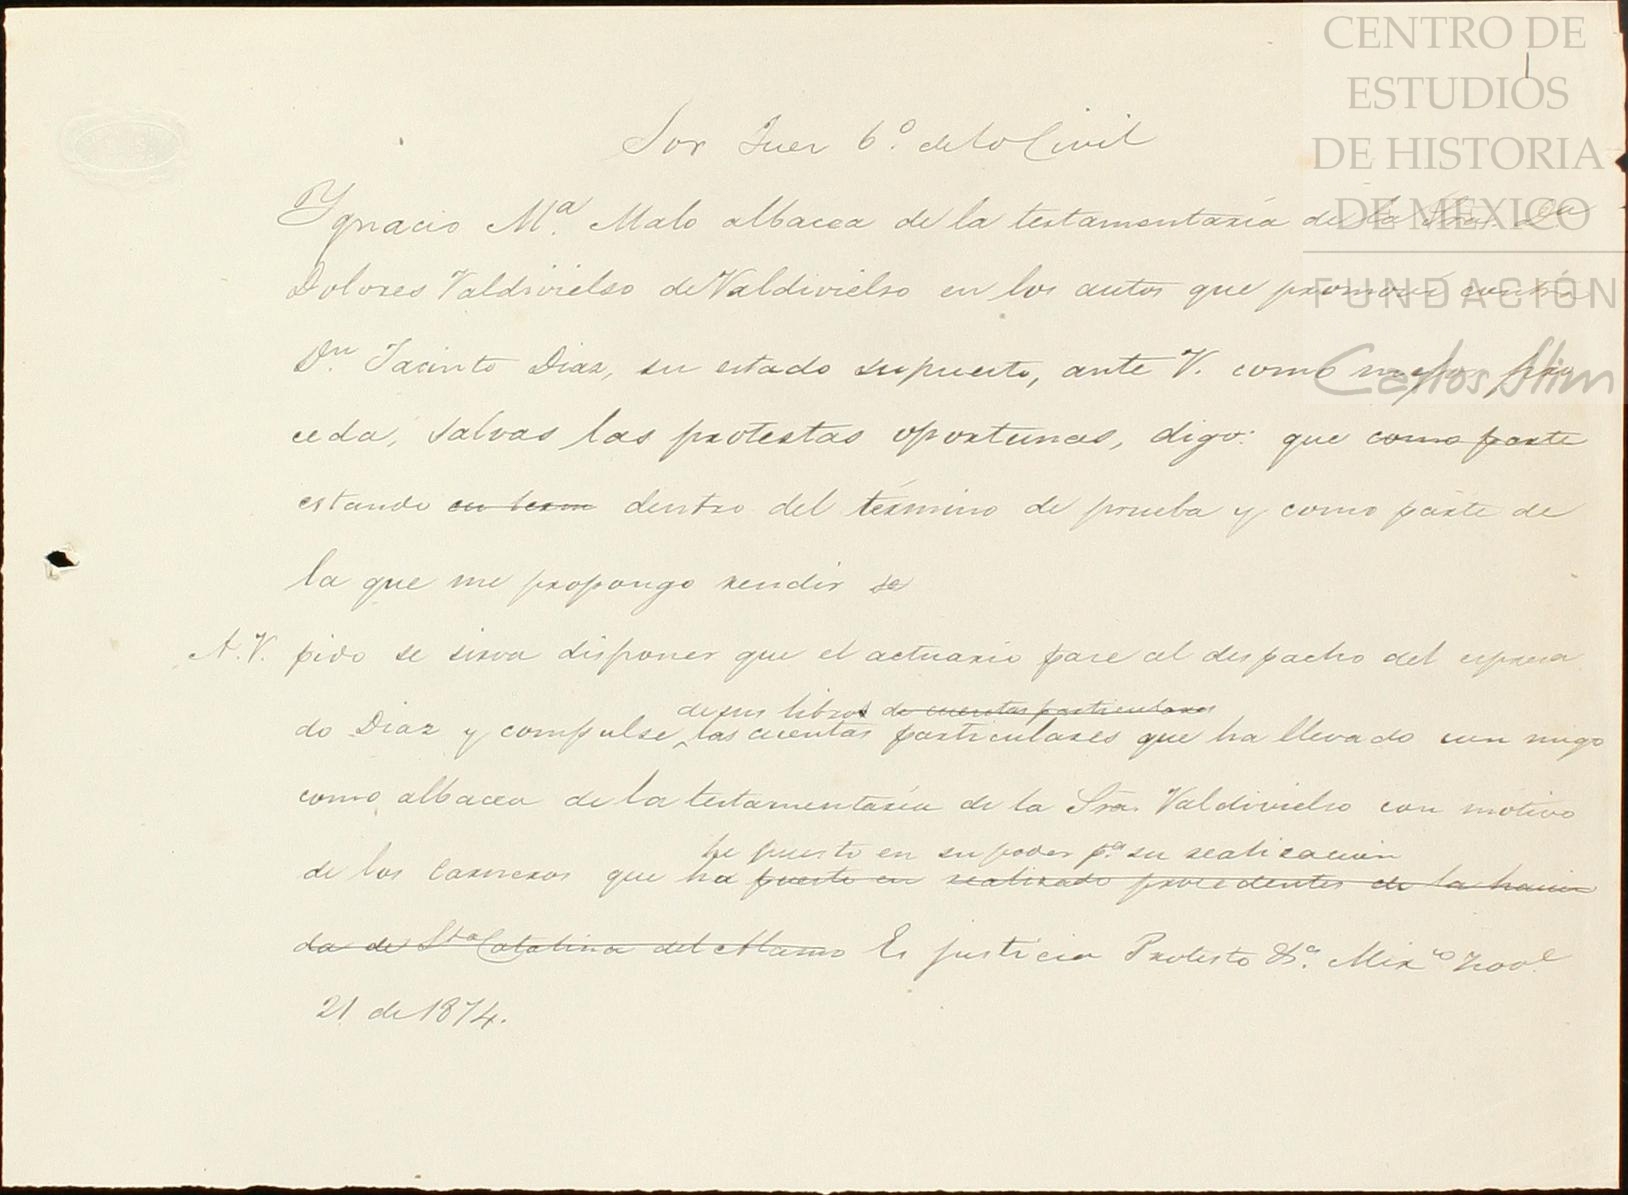 CENTRO DE
ESTUDIOS
DE HISTORIA
DE MÉXICO
FUNDACIÓN
Carlos Slim
1
Sor Juez 6.º de lo Civil
Ygnacio M.ª Malo albacea de la testamentaria de la Sra. Da
Dolores Valdivielso de Valdivielso en los autos que promoví contra
Dn. Jacinto Diaz, su estado supuesto, ante V. como mejor pro
ceda, salvas las protestas oportunas, digo: que como parte
estando en term dentro del término de prueba y como parte de
la que me propongo rendir se
A.V. pido se sirva disponer que el actuario pase al despacho del espresa
de sus libros de cuentas particulares
do Diaz y compulse las cuentas particulares que ha llevado con migo
como albacea de la testamentaria de la Sra. Valdivielso con motivo
he puesto en su poder p.ª su realizacion
de los carneros que ha puesto en realizado procedentes de la hacien
da de Sta Catalina del Alamo Es justicia Protesto &.ª Mexco Nove
21 de 1874.